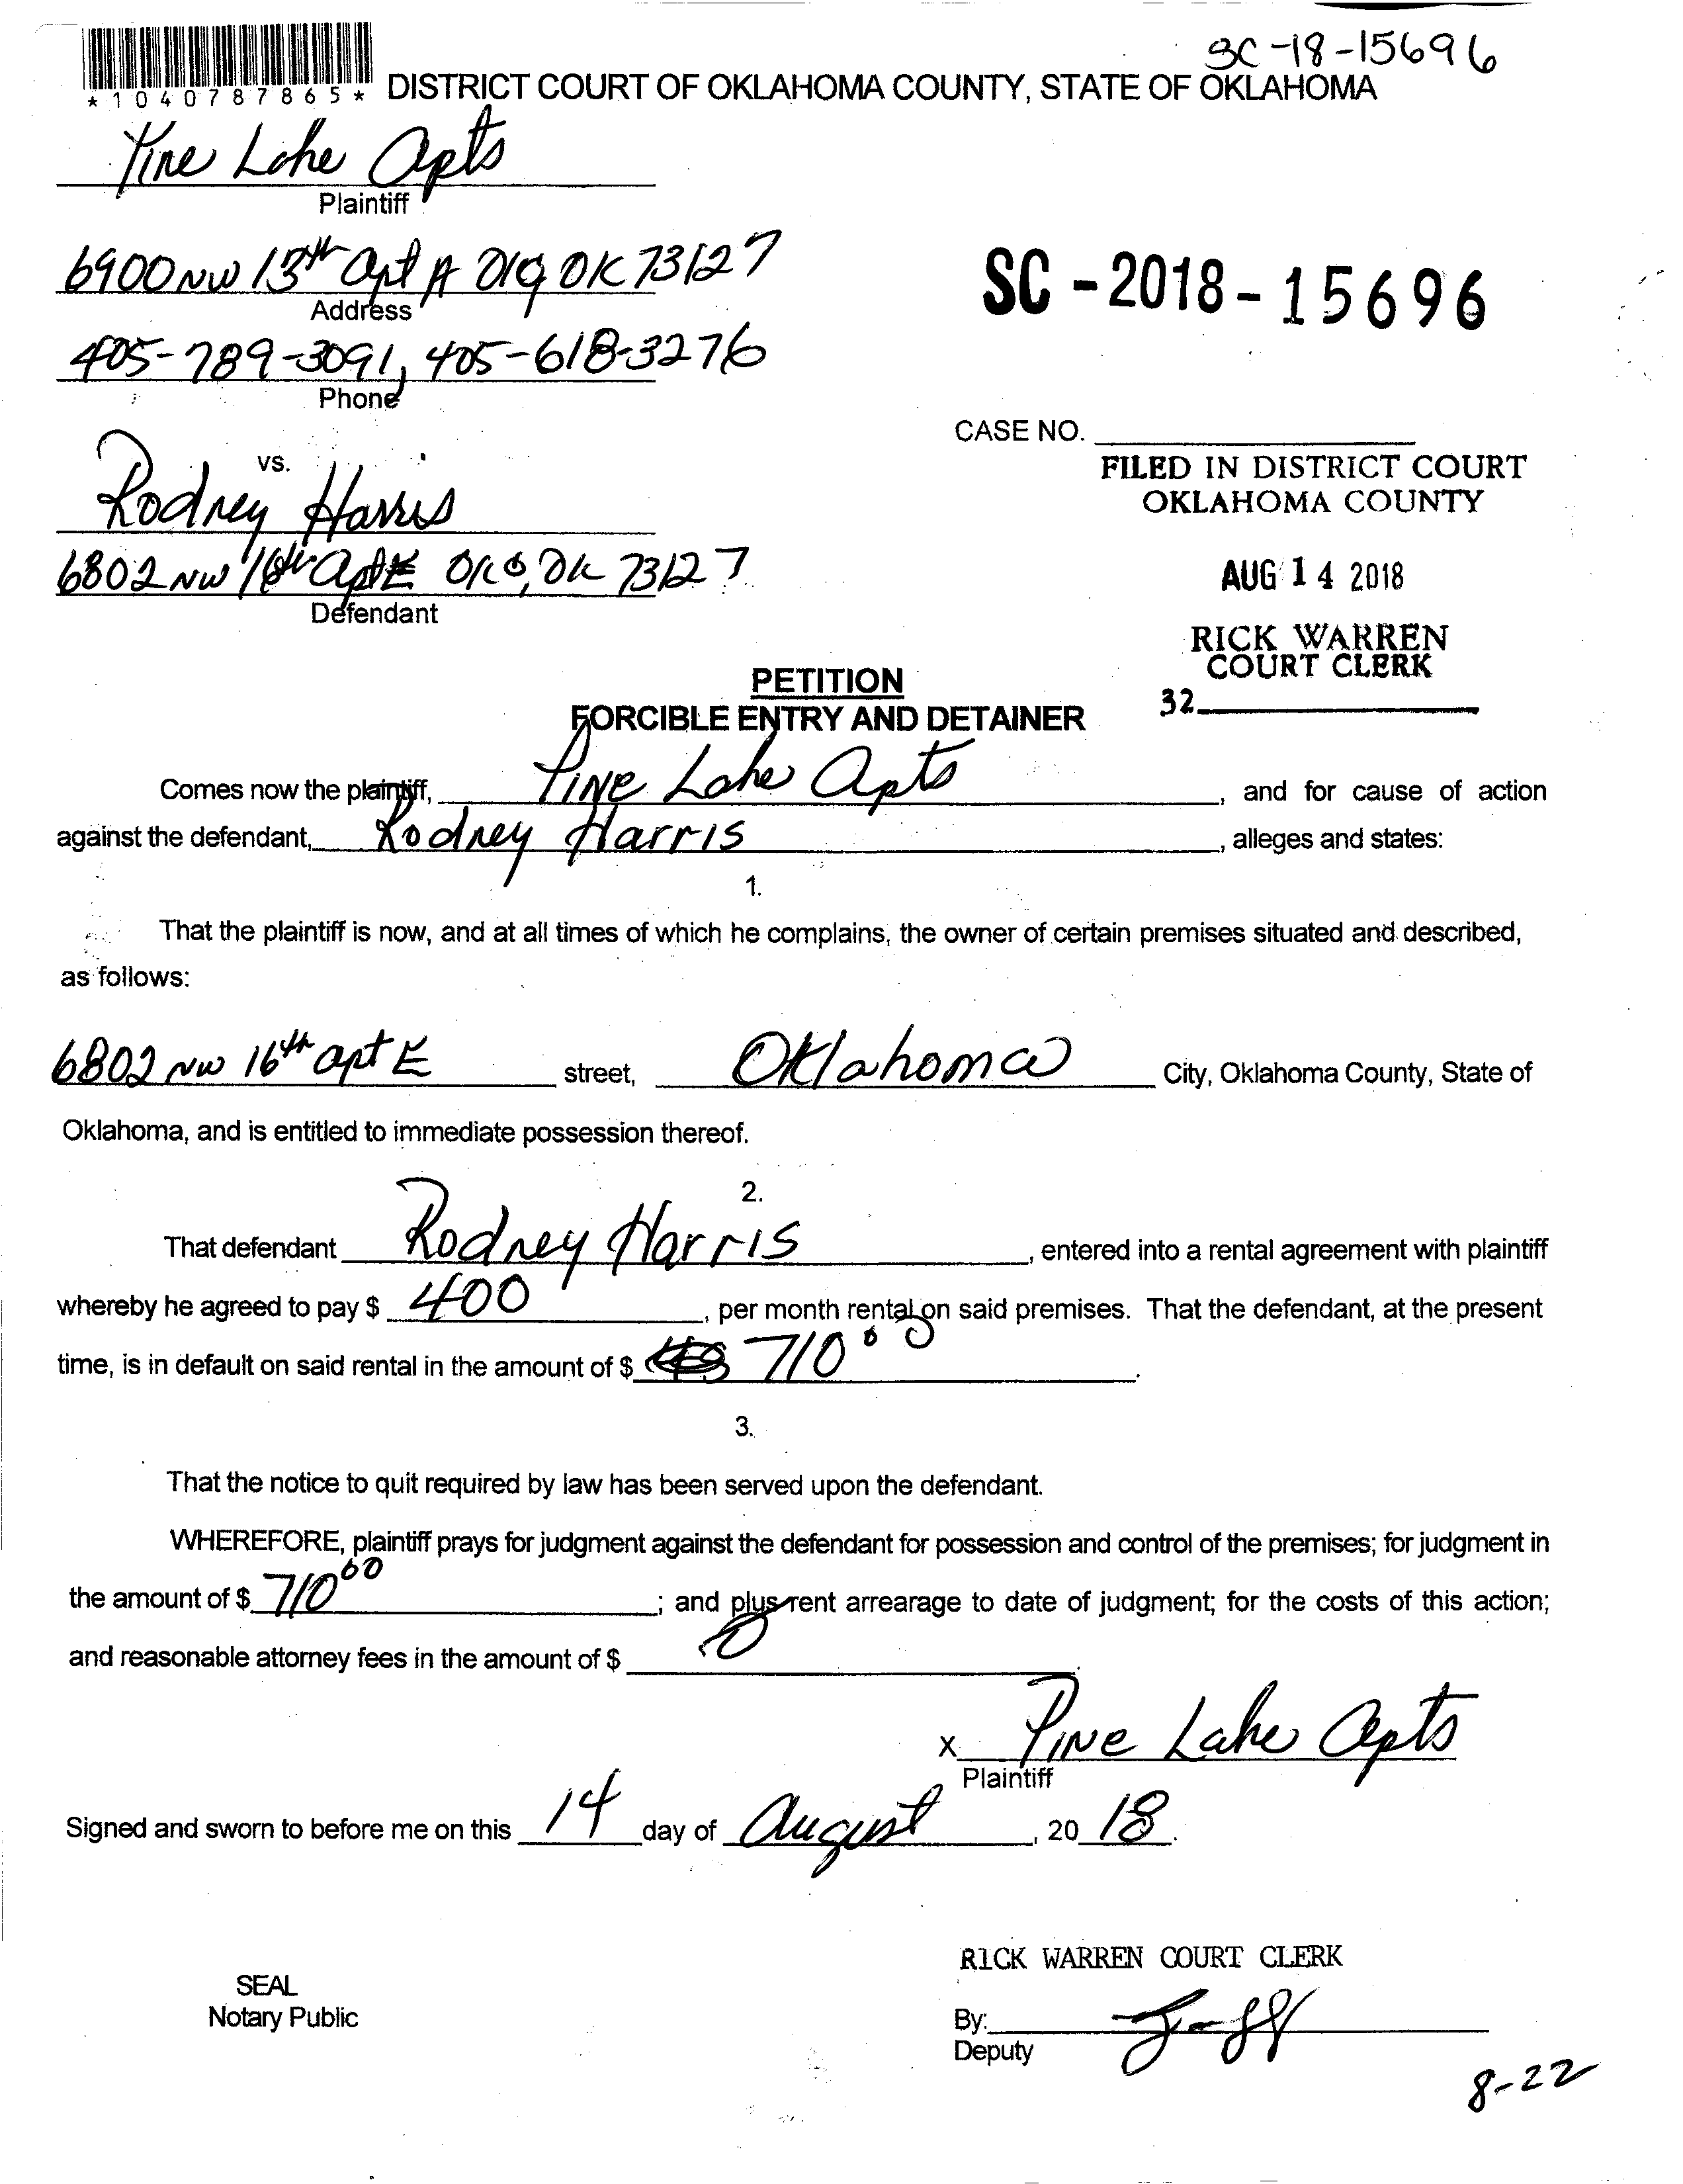 SC-18-15696
*1040787865* DISTRICT COURT OF OKLAHOMA COUNTY, STATE OF OKLAHOMA
Pine Lake Apts
Plaintiff
6900 NW 13th Apt A OK 73127
Address
405-789-3091, 405-618-3276
Phone
SC-2018-15696
CASE NO.
vs.
Rodney Harris
6802 NW 16th Apt E OKC, OK 73127
Defendant
FILED IN DISTRICT COURT
OKLAHOMA COUNTY
AUG 14 2018
RICK WARREN
COURT CLERK
32
PETITION
FORCIBLE ENTRY AND DETAINER
Comes now the plaintiff, Pine Lake Apts, and for cause of action
against the defendant, Rodney Harris, alleges and states:
1.
That the plaintiff is now, and at all times of which he complains, the owner of certain premises situated and described,
as follows:
6802 NW 16th apt E street, Oklahoma City, Oklahoma County, State of
Oklahoma, and is entitled to immediate possession thereof.
2.
That defendant Rodney Harris, entered into a rental agreement with plaintiff
whereby he agreed to pay $ 400, per month rental on said premises. That the defendant, at the present
time, is in default on said rental in the amount of $ 710 00.
3.
That the notice to quit required by law has been served upon the defendant.
WHEREFORE, plaintiff prays for judgment against the defendant for possession and control of the premises; for judgment in
the amount of $ 710 00; and plus rent arrearage to date of judgment; for the costs of this action;
and reasonable attorney fees in the amount of $ 0.
X Pine Lake Apts
Plaintiff
Signed and sworn to before me on this 14 day of August, 20 18.
RICK WARREN COURT CLERK
SEAL
Notary Public
By:
Deputy
8-22